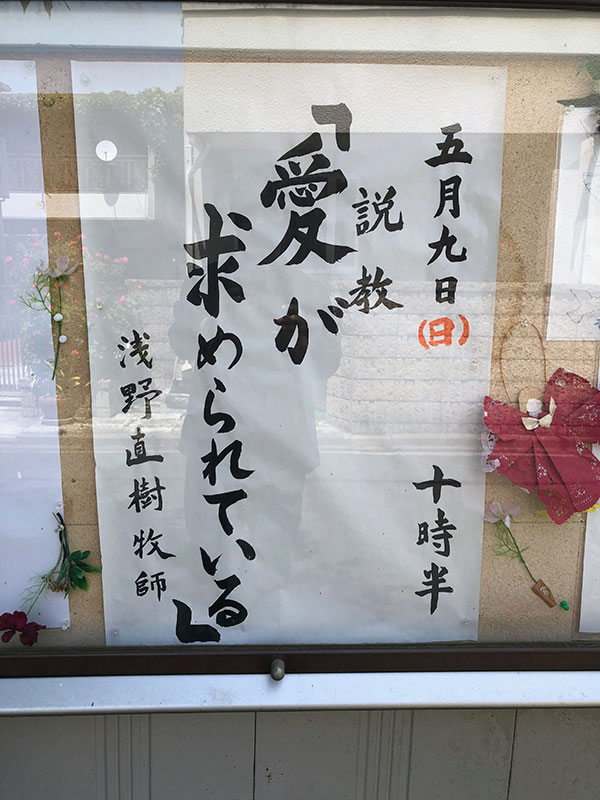 五月九日(日) 十時半
説教
「愛が
求められている」
浅野直樹牧師